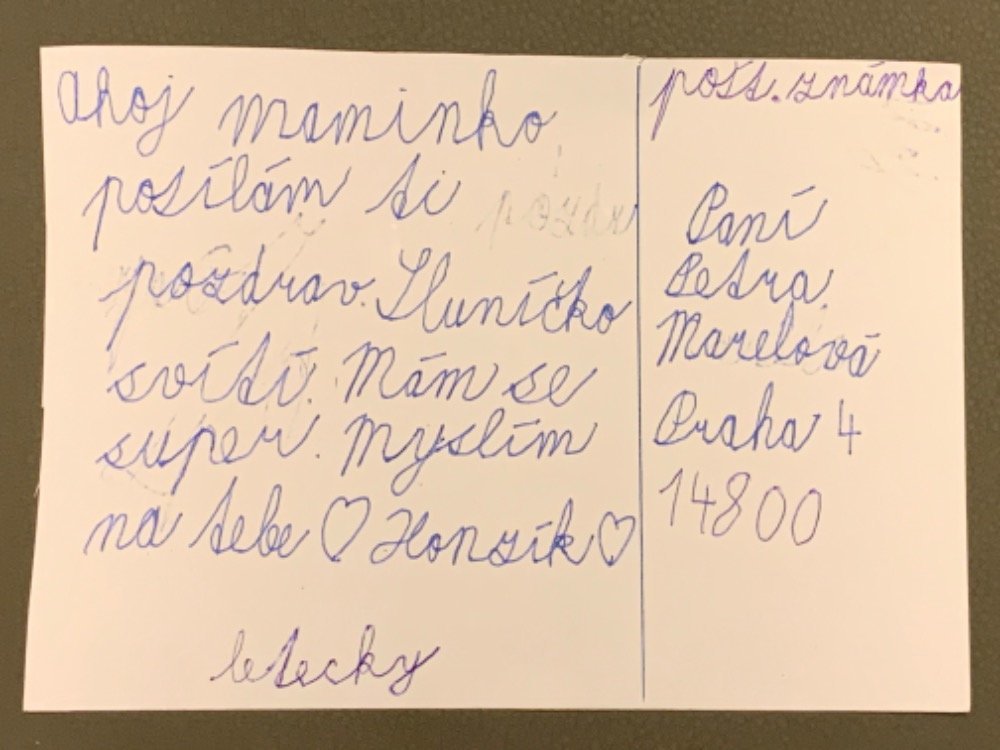 Ahoj maminko,
posílám ti
pozdrav. Sluníčko
svítí. Mám se
super. Myslím
na tebe ♡ Honzík ♡
letecky
pošt. známka
Paní
Petra
Marelová
Praha 4
14800